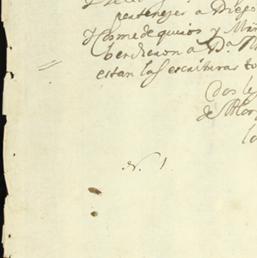 pertenezer a Diego
Y Cosme de quiros y M
bendieron a D.ª M
estan las escrituras to
dos le
de
lo
N. 1